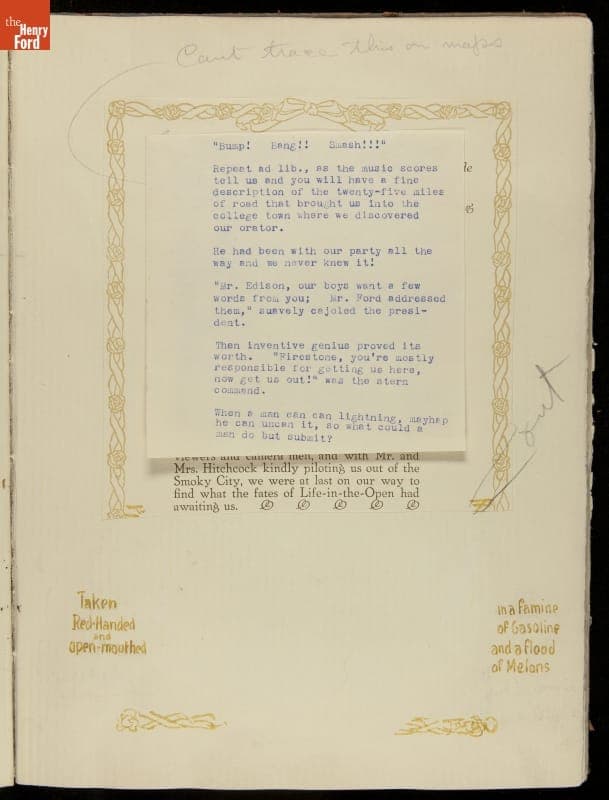 the
Henry
Ford
Can't trace this on maps
"Bump! Bang!! Smash!!!"
Repeat ad lib., as the music scores
tell us and you will have a fine
description of the twenty-five miles
of road that brought us into the
college town where we discovered
our orator.
He had been with our party all the
way and we never knew it!
"Mr. Edison, our boys want a few
words from you; Mr. Ford addressed
them," suavely cajoled the presi-
dent.
Then inventive genius proved its
worth. "Firestone, you're mostly
responsible for getting us here,
now get us out!" was the stern
command.
When a man can can lightning, mayhap
he can uncan it, so what could a
man do but submit?
viewers and camera men, and with Mr. and
Mrs. Hitchcock kindly piloting us out of the
Smoky City, we were at last on our way to
find what the fates of Life-in-the-Open had
awaiting us.
Taken
Red-Handed
and
open-mouthed
In a Famine
of Gasoline
and a flood
of Melons